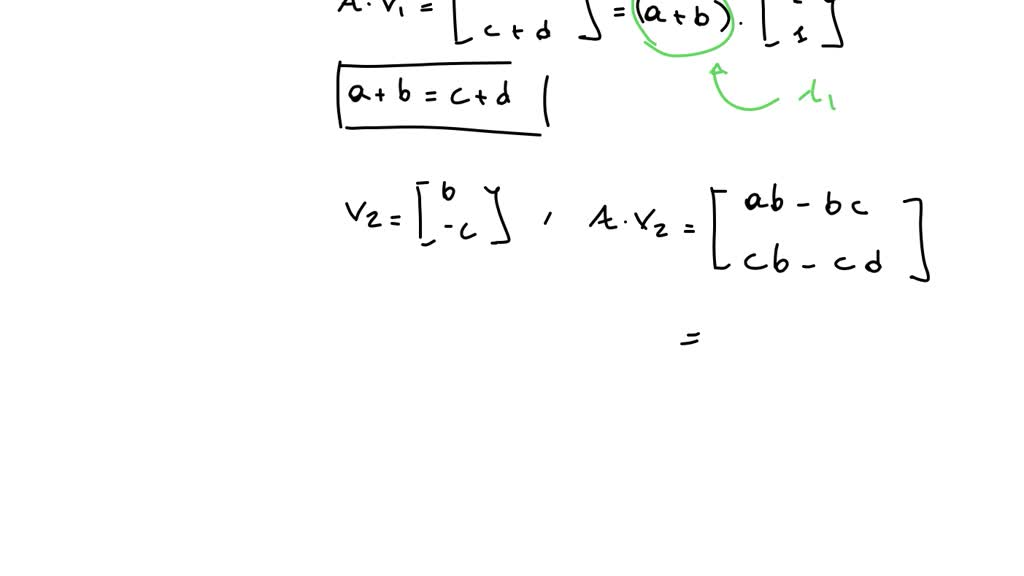 A · V₁ = [ c + d ] = (a + b) · [ 1 ]
a + b = c + d
λ₁
V₂ = [ b -c ] , A · V₂ = [ ab - bc cb - cd ]
=